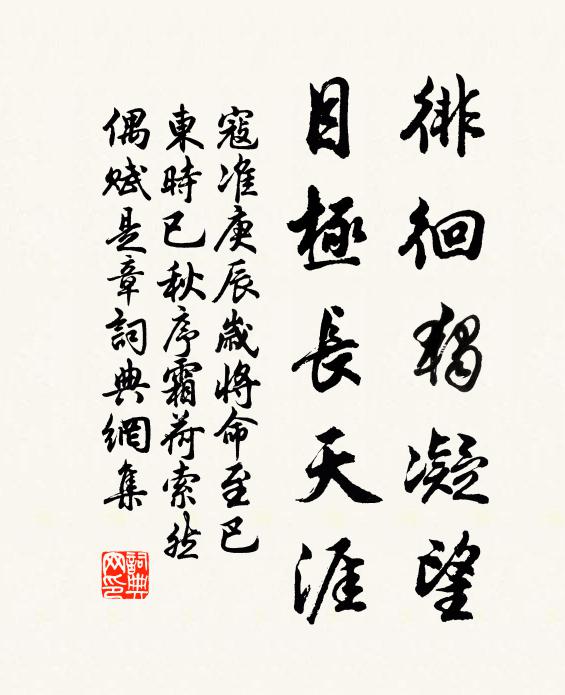 徘徊獨凝望
目極長天涯
寇准庚辰歲將命至巴
東時已秋序霜荷索然
偶賦是章詞典網集
詞典网印